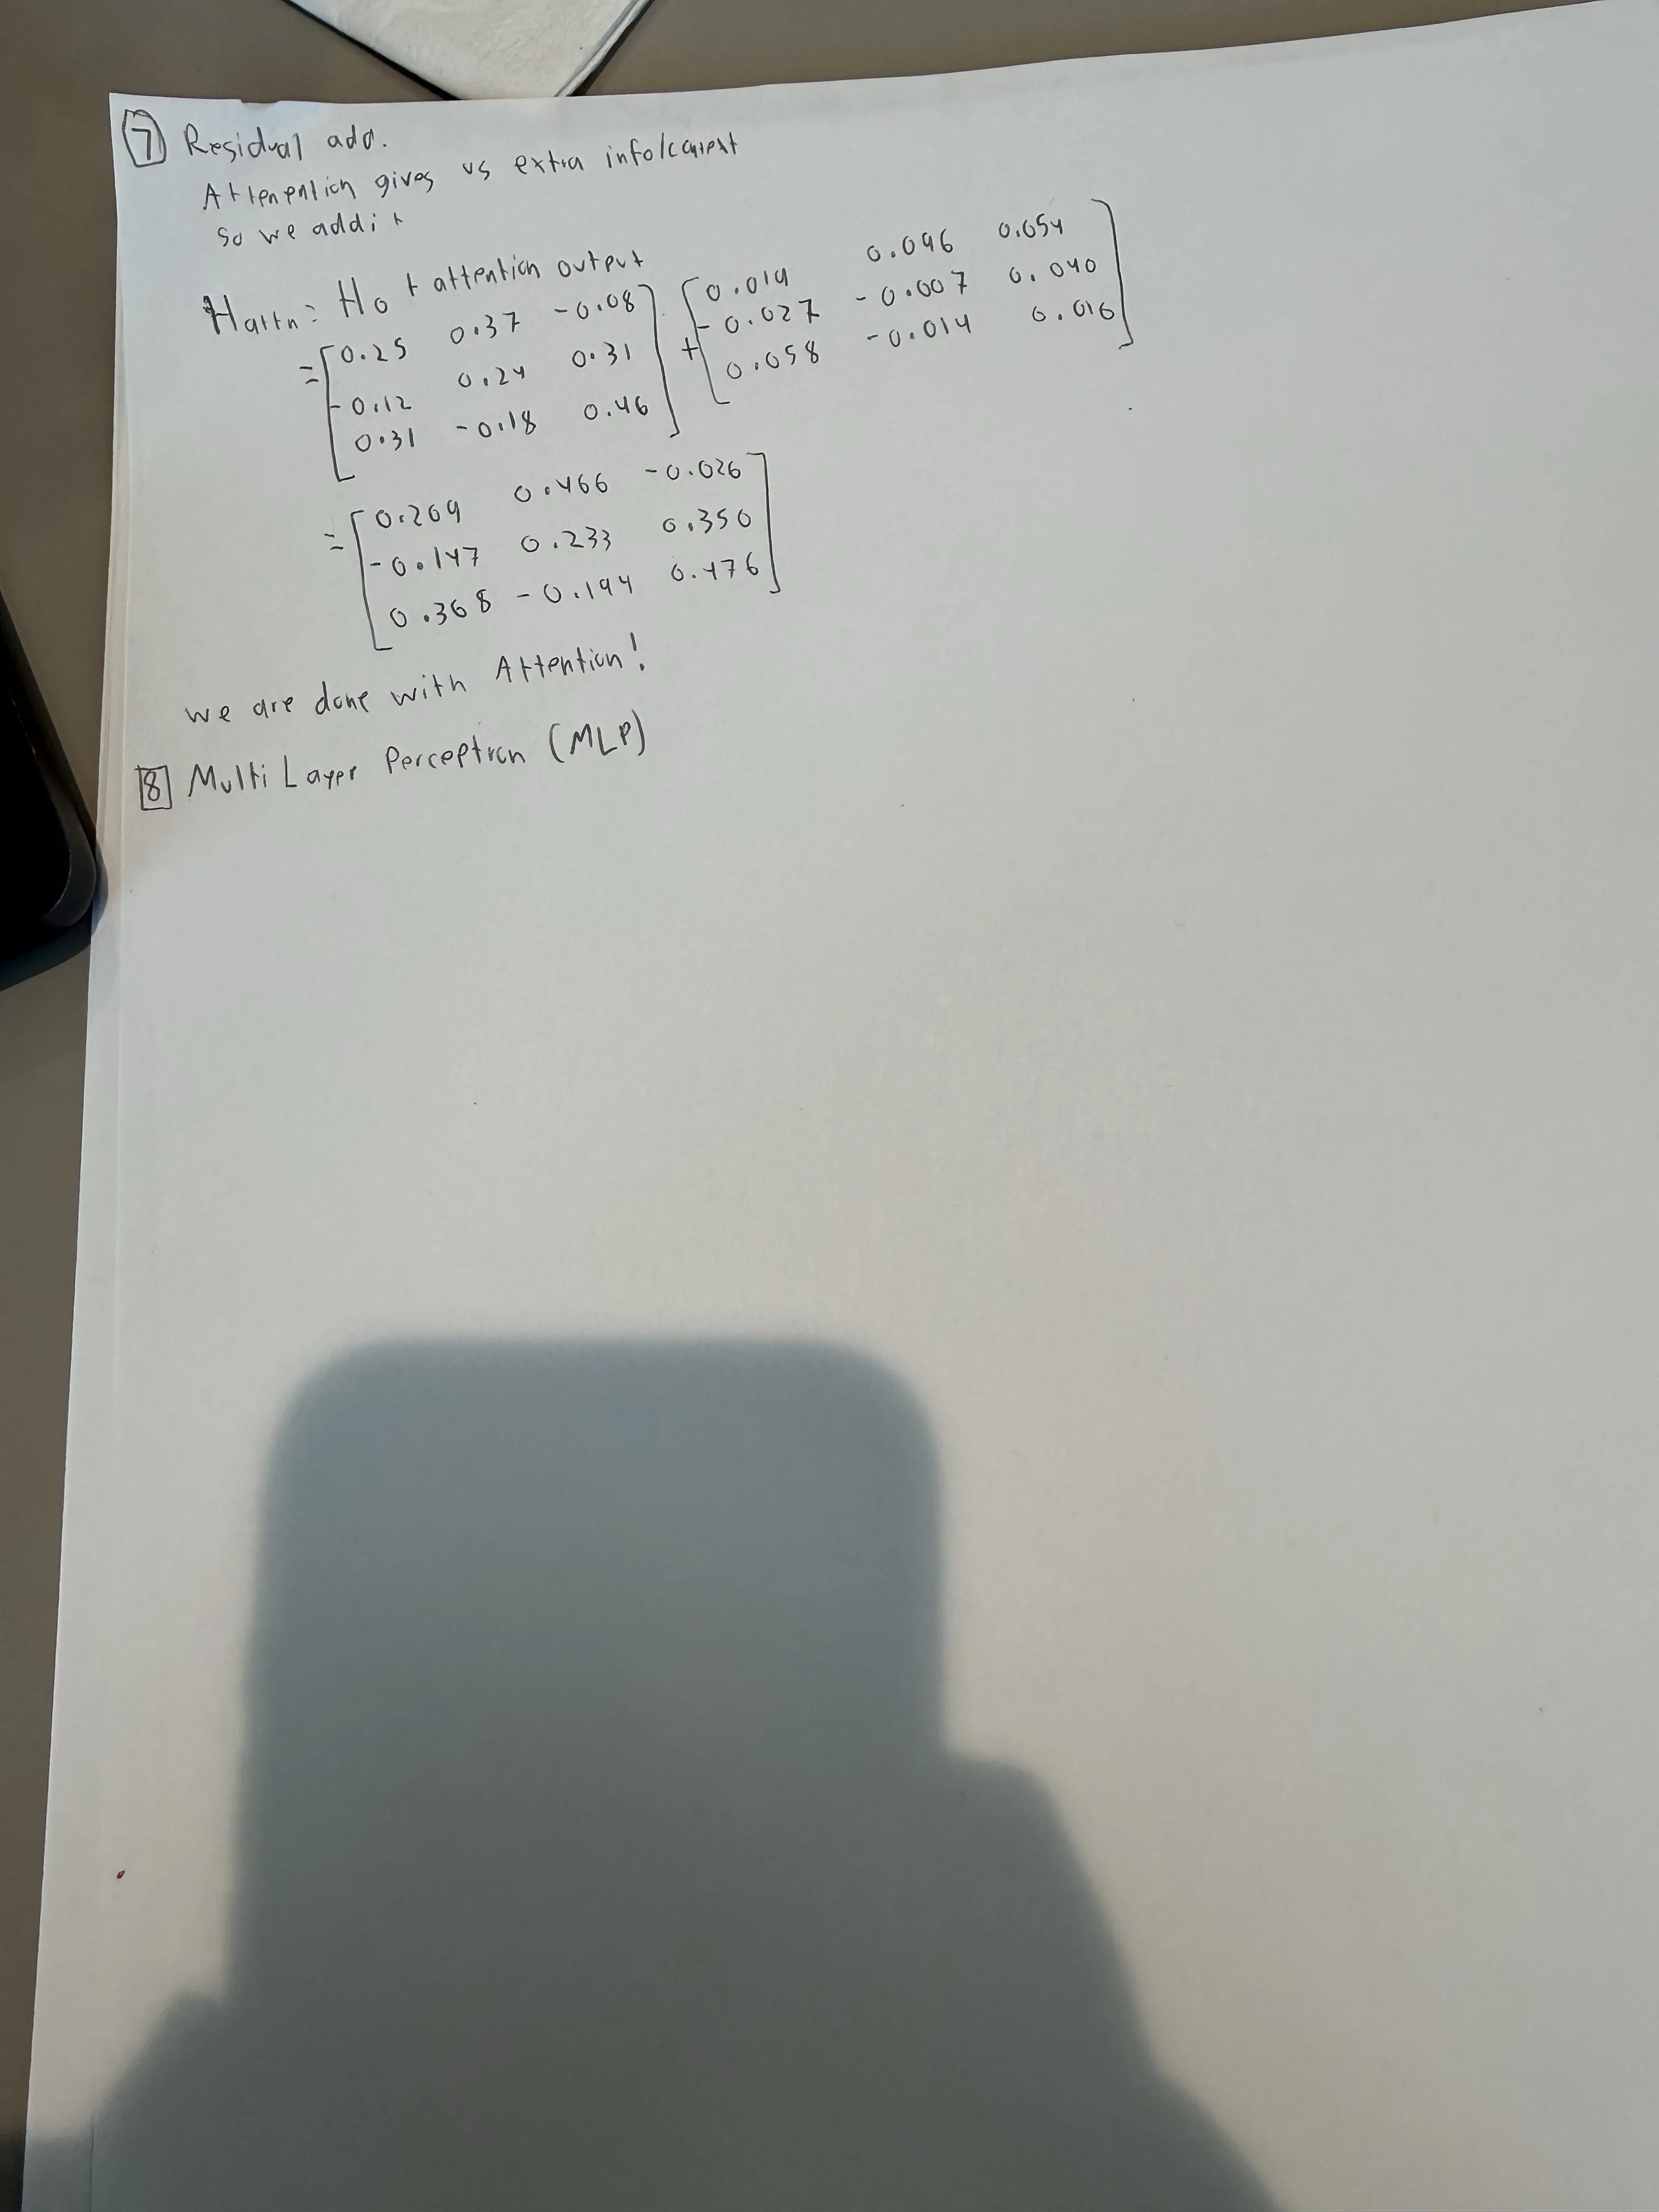 7 Residual add.
Attenention gives us extra info/context
so we add it
Hattn = H0 + attention output
= [0.25 0.37 -0.08
-0.12 0.24 0.31
0.31 -0.18 0.46] + [0.019 0.096 0.054
-0.027 -0.007 0.040
0.058 -0.014 0.016]
= [0.269 0.466 -0.026
-0.147 0.233 0.350
0.368 -0.194 0.476]
we are done with Attention!
8 Multi Layer Perceptron (MLP)